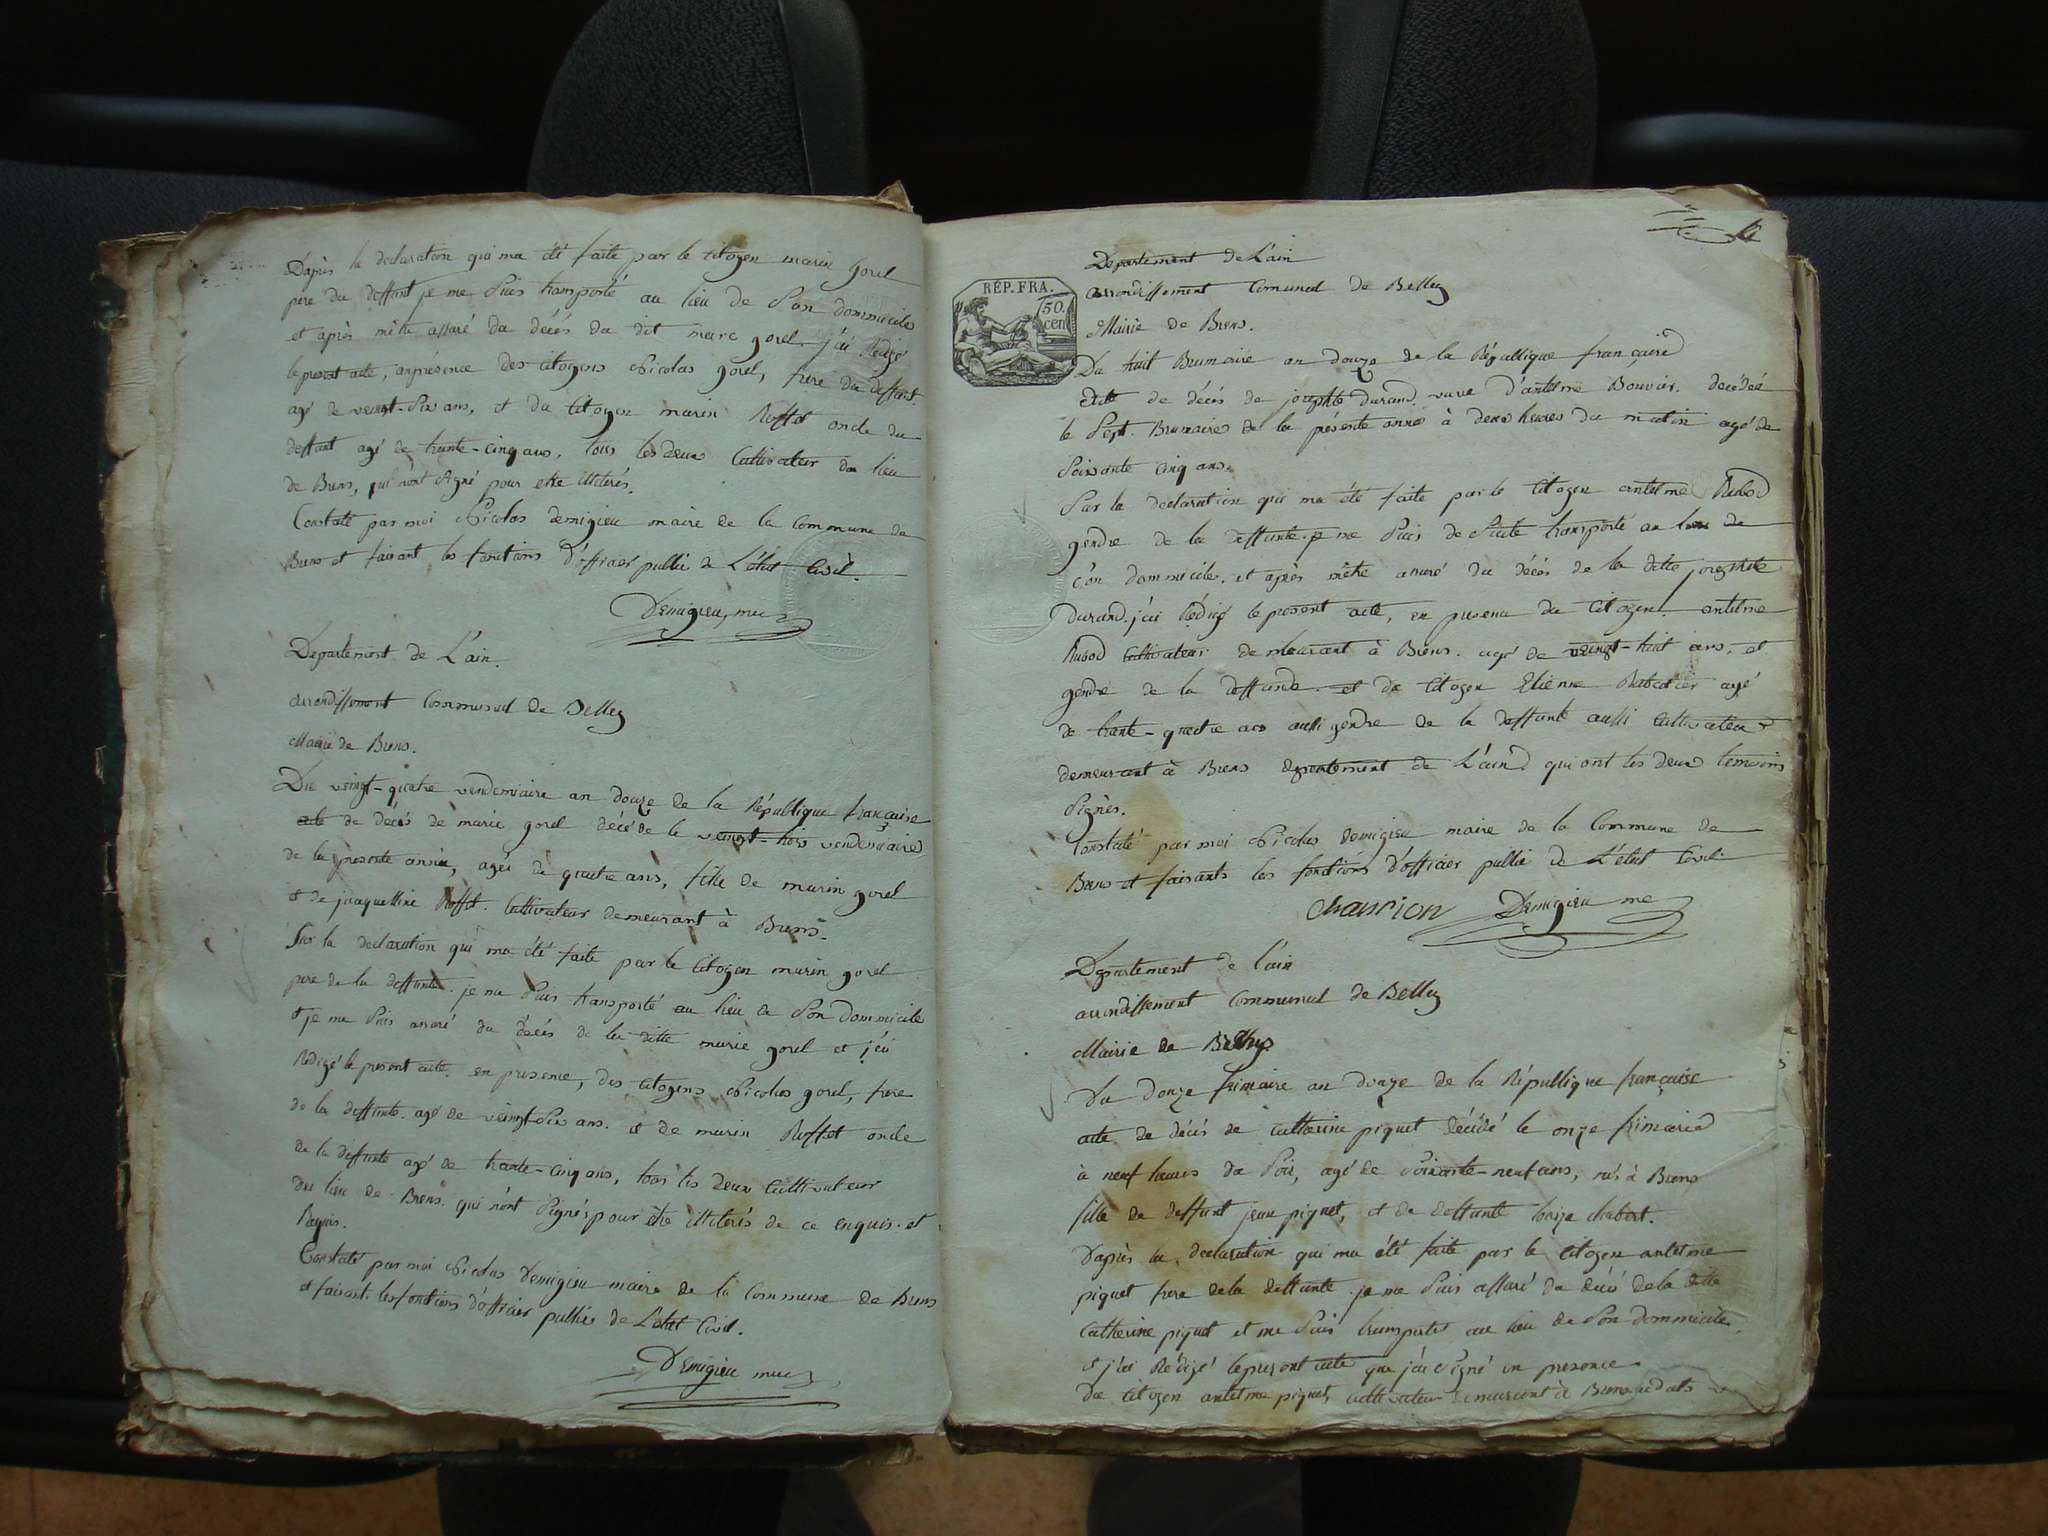 D'après la declaration qui ma été faite par le citoyen marin gorel
pere du deffunt je me suis transporté au lieu de son dommicile
et après mêtre assuré du décés du dit marc gorel j'ai Rédigé
le present acte, en présence des citoyens Nicolas gorel, frere du deffunt
agé de veingt-six ans, et du citoyen marin Roffet oncle du
deffunt agé de trante-cinq ans, tous les deux Cultivateur du lieu
de Brens, qui n'ont signé pour etre illiterés.
Constaté par moi Nicolas demigieu maire de la Commune de
Brens et faisant les fonctions D'officier public de L'état Civil.
Demigieu, mre
Departement de L'ain.
arrondissement Communal de Belley
Mairie de Brens.
Du veingt-quatre vendemiaire an douze de la République francaise
acte de décés de marie gorel décédé le veingt-trois vendemiaire
de la presente année, agée de quatre ans, fille de marin gorel
et de jacquelline Roffet. Cultivateur demeurant à Brens.
Sur la declaration qui ma été faite par le Citoyen marin gorel
pere de la deffunte. je me suis transporté au lieu de son dommicile
et je me suis assuré du décés de la ditte marie gorel et j'ai
Redigé le present acte. en presence, des Citoyens Nicolas gorel, frere
de la deffunte. agé de veingt-six ans. et de marin Roffet oncle
de la deffunte agé de trante-cinq ans, tous les deux Cultivateur
du lieu de Brens. qui n'ont signés pour être illiterés de ce enquis. et
Requis.
Constaté par moi Nicolas Demigieu maire de la Commune de Brens
et faisant les fonctions d'officier public de L'état Civil.
Demigieu mre
RÉP. FRA.
50.
cen
Departement de L'ain
arrondissement Comunal de Belley
Mairie de Brens.
Du huit Brumaire an douze de la République française
Acte de décés de josephte durand veuve d'antelme Bouvier. décédée
le sept. Brumaire de la présente année à deux heures du matin agé de
soixante cinq ans.
Sur la declaration qui ma été faite par le Citoyen antelme Rubod
gendre de la deffunte. je me suis de suite transporté au lieu de
son dommicile. et après mêtre assuré du décés de la ditte josephte
durand. j'ai Redigé le present acte, en presence du Citoyen antelme
Rubod Cultivateur demeurant à Brens. agé de veingt-huit ans, et
gendre de la deffunte. et de Citoyen Etienne agé
de trante-quatre ans aussi gendre de la deffunte aussi cultivateur
demeurant à Brens departement de L'ain. qui ont les deux temoins
signés.
Constaté par moi Nicolas demigieu maire de la Commune de
Brens et faisants les fonctions d'officier public de L'état Civil.
Demigieu mre
Departement de L'ain
arrondissement Communal de Belley
Mairie de
Du douze frimaire an douze de la République française
acte de décés de catherine piquet décédé le onze frimaire
à neuf heures du soir, agé de soixante-neuf ans, née à Brens
fille de deffunt jean piquet, et de deffunte Loüize chabert.
D'après la declaration qui ma été faite par le Citoyen antelme
piquet frere de la deffunte. je me suis assuré du décés de la ditte
Catherine piquet et me suis transporté au lieu de son dommicile,
et j'ai Rédigé le present acte que j'ai signé en presence
du Citoyen antelme piquet, cultivateur demeurant à Brens